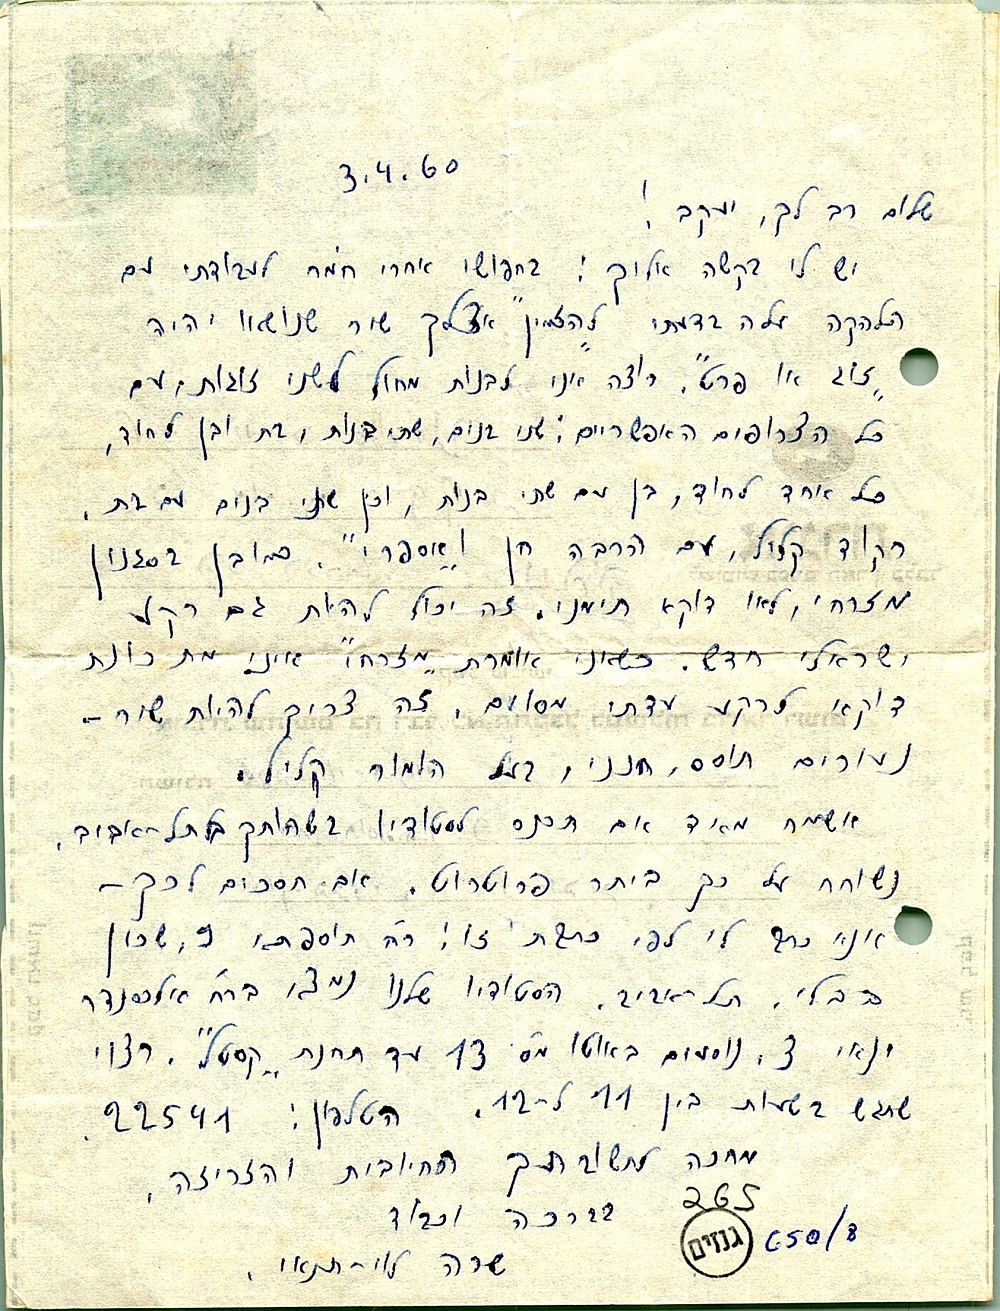 3.4.60
שלום רב לך, יעקב!
יש לי בקשה אליך: בחפושי אחרי חמר לעבודתי עם
הלהקה עלה בדעתי "להזמין" אצלך שיר שנושאו יהיה
"זוג או פרט". רוצה אני לבנות מחול לשני זוגות, עם
כל הצרופים האפשריים: שני בנים, שתי בנות, בת ובן לחוד,
כל אחד לחוד, בן עם שתי בנות, וכן שני בנים עם בת.
רקוד קליל, עם הרבה חן ו"אספרי". כמובן בסגנון
מזרחי, לאו דוקא תימני. זה יכול להיות גם רקע
ישראלי חדש. כשאני אומרת "מזרחי" אינני מתכונת
דוקא לרקע עדתי מסוים. זה צריך להיות שיר –
נעורים תוסס, חנני, בעל הומור קליל.
אשמח מאיד אם תכנס לסטודיו בשהותך בתל-אביב.
נשוחח על כך ביתר פרוטרוט. אם תסכים לכך –
אנא כתב לי לפי כתבת זו: רח' תוספתא 9, שכון
בבלי, תל-אביב. הסטודיו שלנו נמצא ברח' אלכסנדר
ינאי 3, נוסעים באוטו מס' 13 עד תחנת "קסטל". רצוי
שתגש בשעות בין 11 ל-12. הטלפון: 22541.
מחכה לתשובתך החיובית והזריזה,
בברכה וכבוד
שרה לוי-תנאי.
265
גנזים
650/8